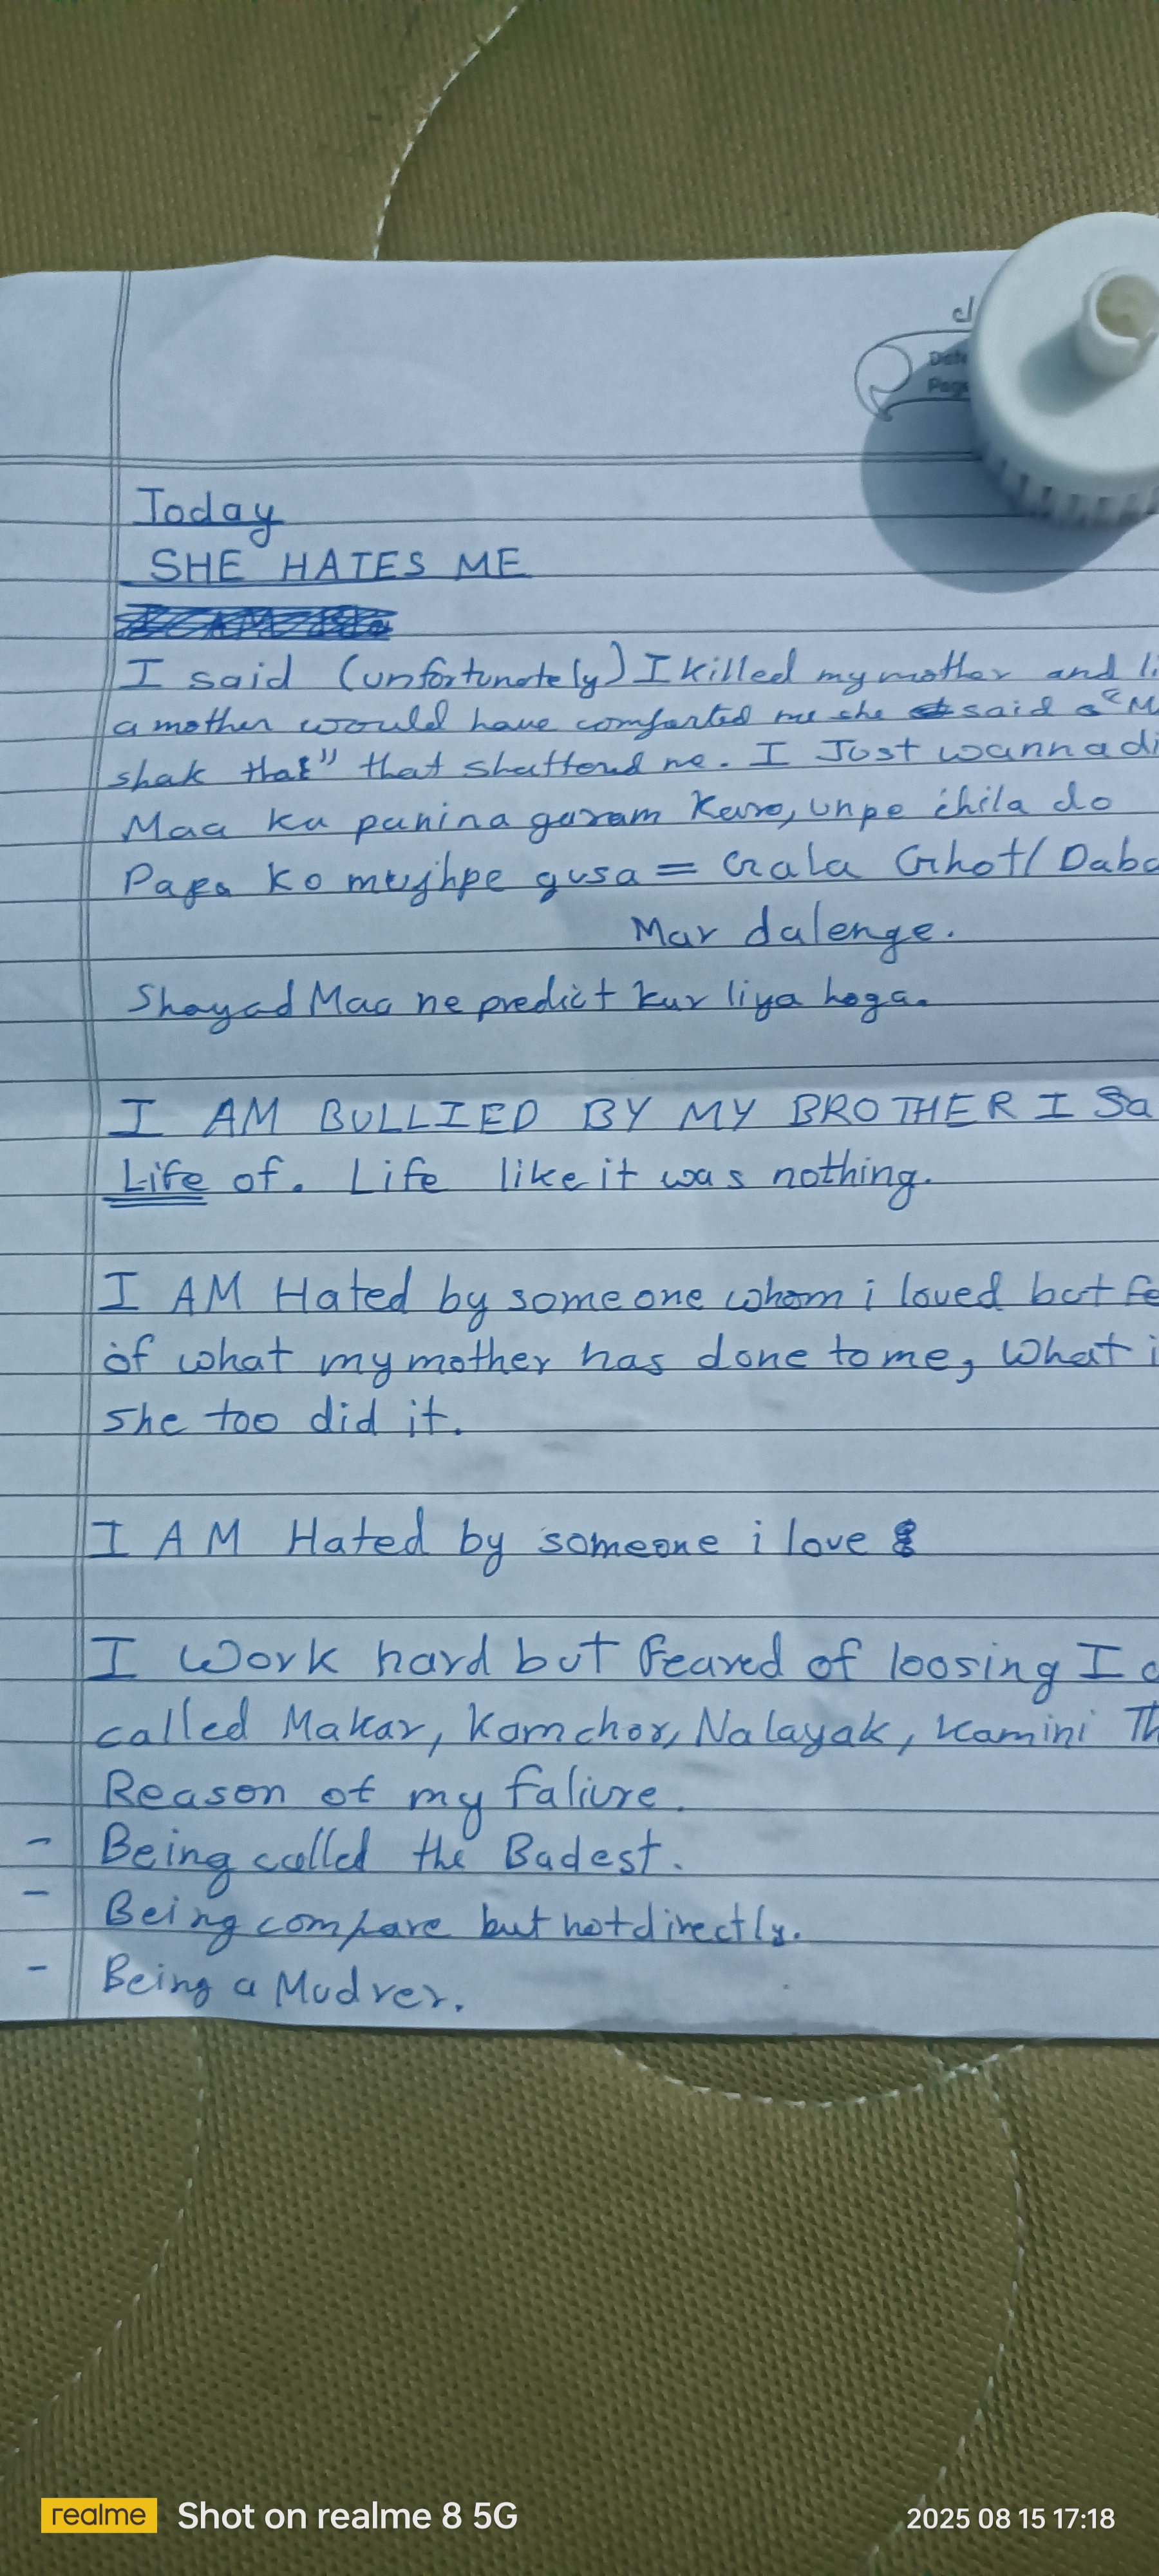 Date
Page
Today
SHE HATES ME
I said (unfortunately) I killed my mother and li
a mother would have comforted me she said a "M
shak tha" that shattered me. I Just wanna di
Maa ka panina garam karo, unpe chila do
Papa ko mujhpe gusa = Gala Ghot/ Daba
Mar dalenge.
Shayad Maa ne predict kar liya hoga.
I AM BULLIED BY MY BROTHER I Sa
Life of. Life like it was nothing.
I AM Hated by someone whom i loved but fe
of what my mother has done to me, What i
she too did it.
I AM Hated by someone i love
I work hard but feared of loosing I
called Makar, Kamchor, Nalayak, kamini Th
Reason of my faliure.
- Being called the Badest.
- Being compare but not directly.
- Being a Mudrer.
realme Shot on realme 8 5G
2025 08 15 17:18